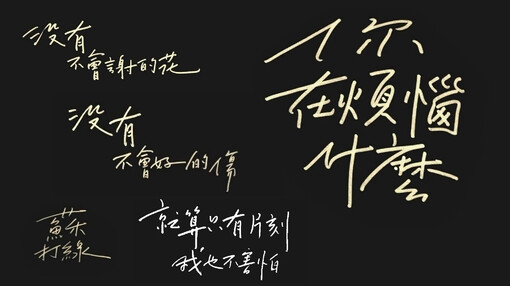 沒有
不會謝的花
沒有
不會好的傷
蘇打綠
就算只有片刻
我也不害怕
你
在煩惱
什麼